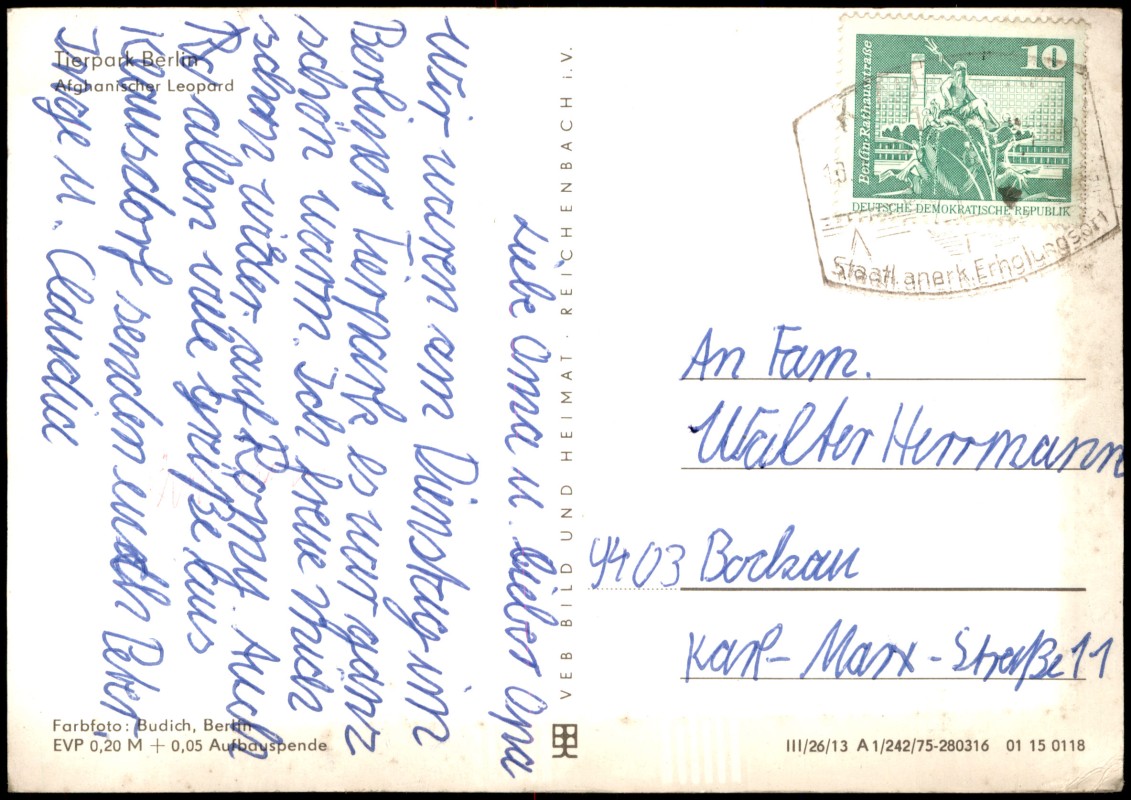 Tierpark Berlin
Afghanischer Leopard
Liebe Oma u. lieber Opa
Wir waren am Dienstag im
Berliner Tierpark es war ganz
schön warm. Ich freue mich
schon wider auf Romy. Auch
allen viele Grüße aus
Klausdorf senden euch Peter
Inge u. Claudia
Farbfoto: Budich, Berlin
EVP 0,20 M + 0,05 Aufbauspende
VEB BILD UND HEIMAT · REICHENBACH i. V.
10
Berlin-Rathausstraße
DEUTSCHE DEMOKRATISCHE REPUBLIK
Staatl. anerk. Erholungsort
An Fam.
Walter Herrmann
9403 Bockau
Karl-Marx-Straße 11
III/26/13 A 1/242/75-280316 01 15 0118